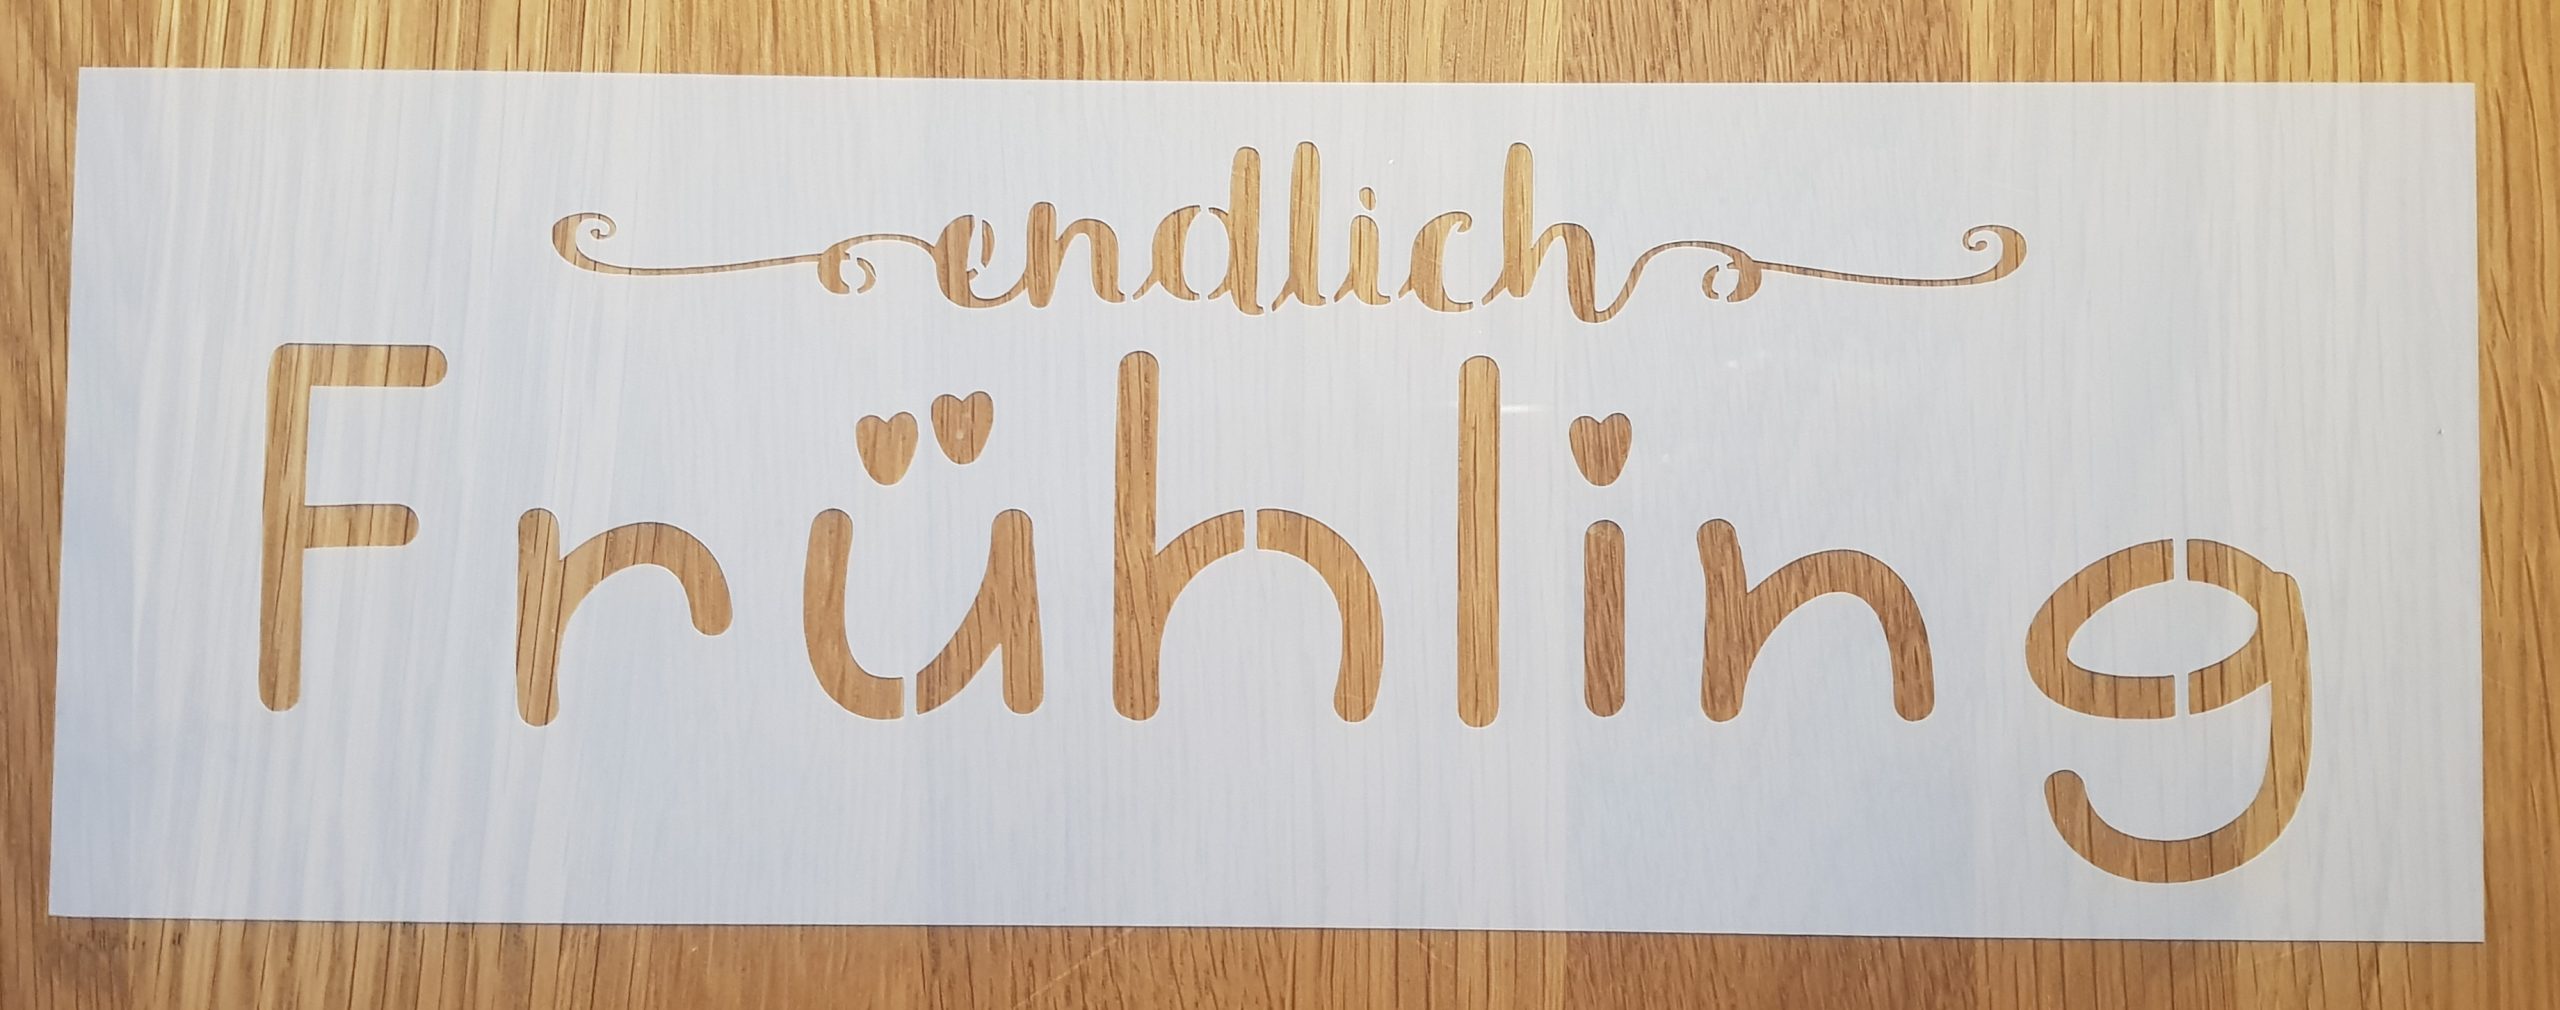 endlich
Frühling